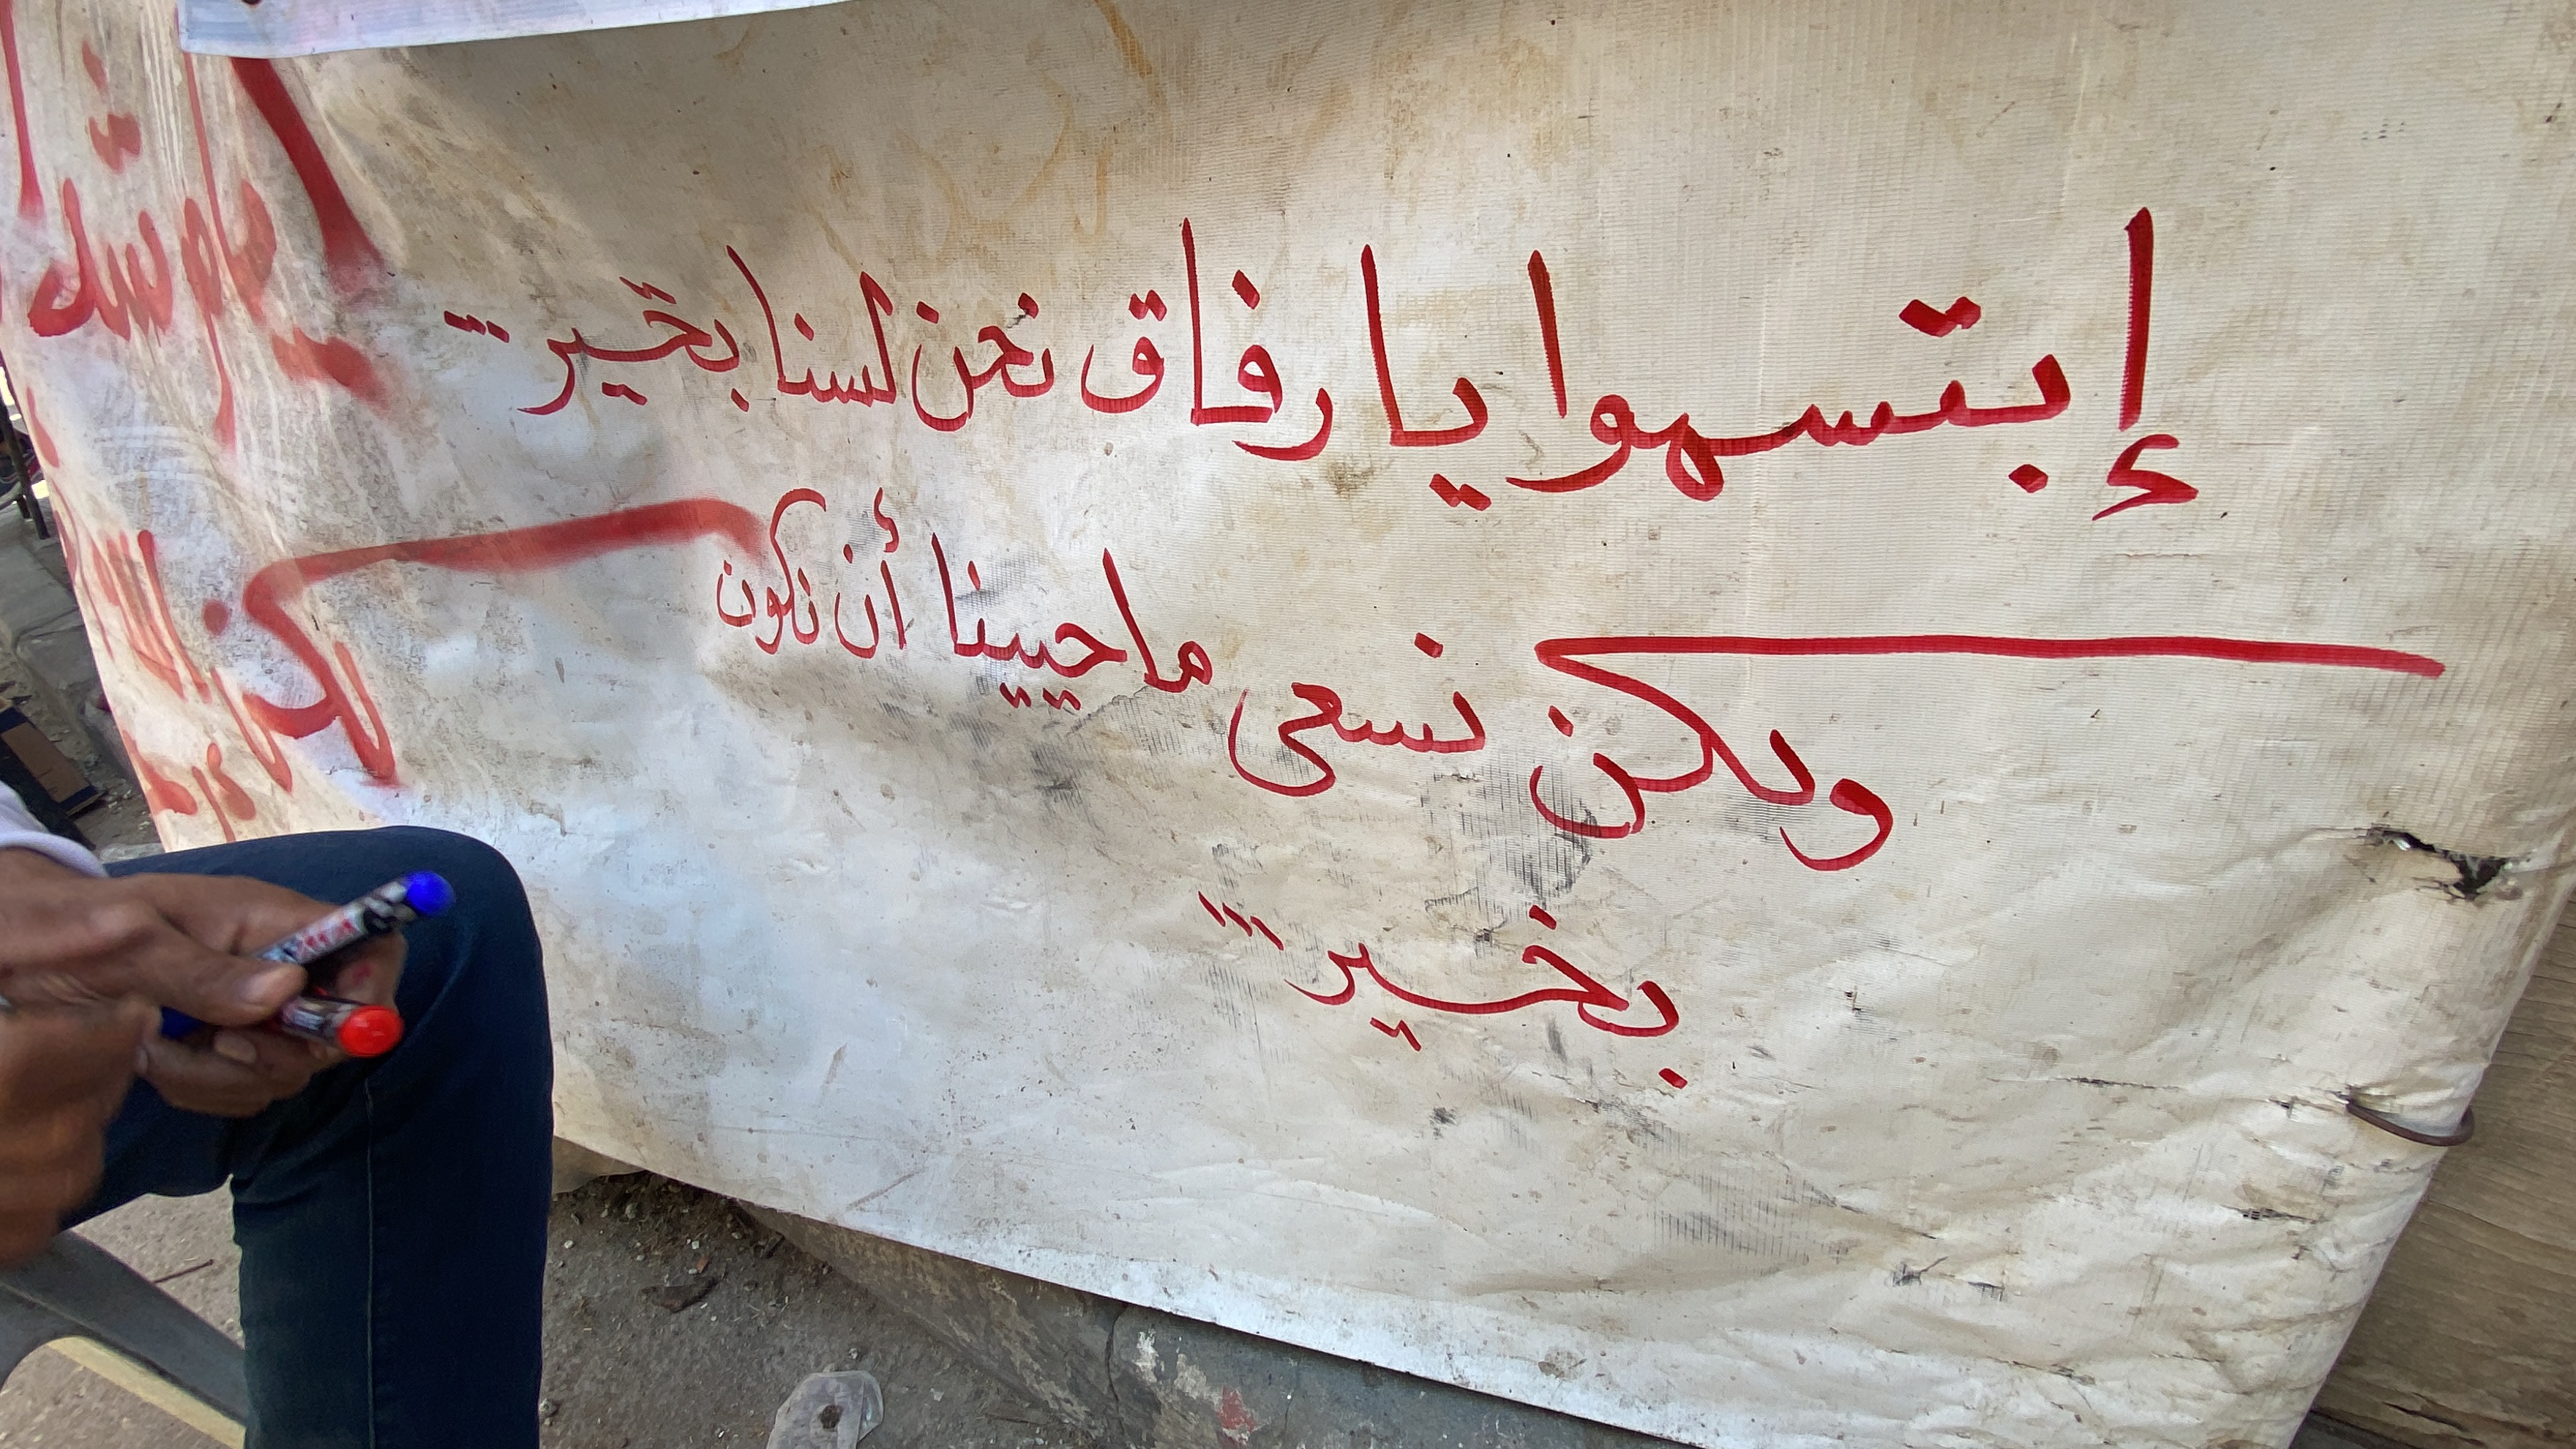 إبتسموا يا رفاق نحن لسنا بخير...
ولكن نسعى ما حيينا أن نكون
بخير...
لكن